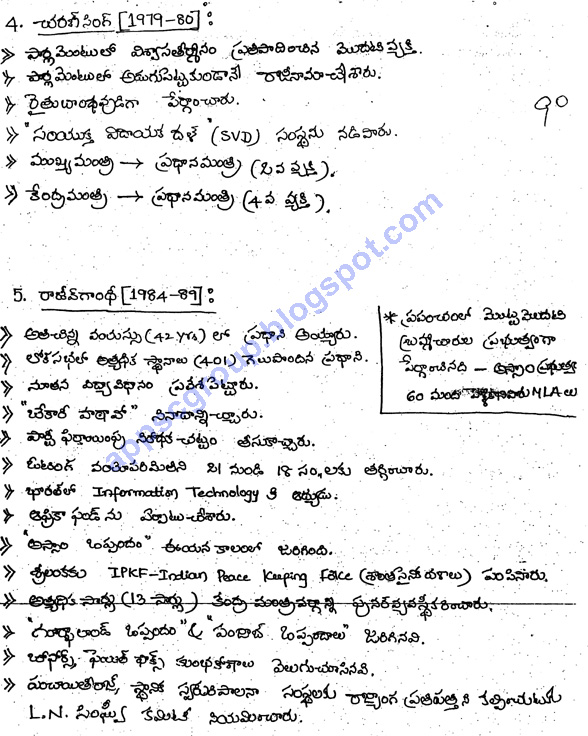 4. చరణ్‌సింగ్ [1979-80] :
» పార్లమెంటులో విశ్వాసతీర్మానం ప్రతిపాదించిన మొదటి వ్యక్తి.
» పార్లమెంటులో అడుగుపెట్టకుండానే రాజీనామా చేశారు.
» రైతుబాంధవుడిగా పేర్గాంచారు.
90
» "సంయుక్త విదాయక దళ్" (SVD) సంస్థను నడిపారు.
» ముఖ్యమంత్రి → ప్రధానమంత్రి (2వ వ్యక్తి).
» కేంద్రమంత్రి → ప్రధానమంత్రి (4వ వ్యక్తి).
5. రాజీవ్‌గాంధీ [1984-89] :
» అతిచిన్న వయస్సు (42 yrs) లో ప్రధాని అయ్యారు.
» లోక్‌సభలో అత్యధిక స్థానాలు (401) గెలుపొందిన ప్రధాని.
» నూతన విద్యావిధానం ప్రవేశపెట్టారు.
» "బేకారీ హఠావో" నినాదాన్నిచ్చారు.
» పార్టీ ఫిరాయింపు నిరోధక చట్టం తీసుకొచ్చారు.
» ఓటింగ్ వయోపరిమితిని 21 నుండి 18 సం,,లకు తగ్గించారు.
» భారత్‌లో Information Technology కి ఆద్యుడు.
» ఆఫ్రికా ఫండ్ ను ఏర్పాటుచేశారు.
» "అస్సాం ఒప్పందం" ఈయన కాలంలో జరిగింది.
» శ్రీలంకకు IPKF-Indian Peace Keeping Force (శాంతిసైనికదళాలు) పంపినారు.
» అత్యధిక సార్లు (13 సార్లు) కేంద్ర మంత్రివర్గాన్ని పునర్‌వ్యవస్థీకరించారు.
» "గూర్ఖాలాండ్ ఒప్పందం" & "పంజాబ్ ఒప్పందాలు" జరిగినవి.
» బోఫోర్స్, ఫెయిర్ ఫాక్స్ కుంభకోణాలు వెలుగుచూసినవి.
» పంచాయితీరాజ్, స్థానిక స్వపరిపాలనా సంస్థలకు రాజ్యాంగ ప్రతిపత్తిని కల్పించుటకు
L.N. సింఘ్వీ కమిటీ నియమించారు.
* ప్రపంచంలో మొట్టమొదటి
బ్రహ్మచారుల ప్రభుత్వంగా
పేర్గాంచినది - అస్సాం ప్రభుత్వం
60 మంది MLA లు
appscgroup1.blogspot.com